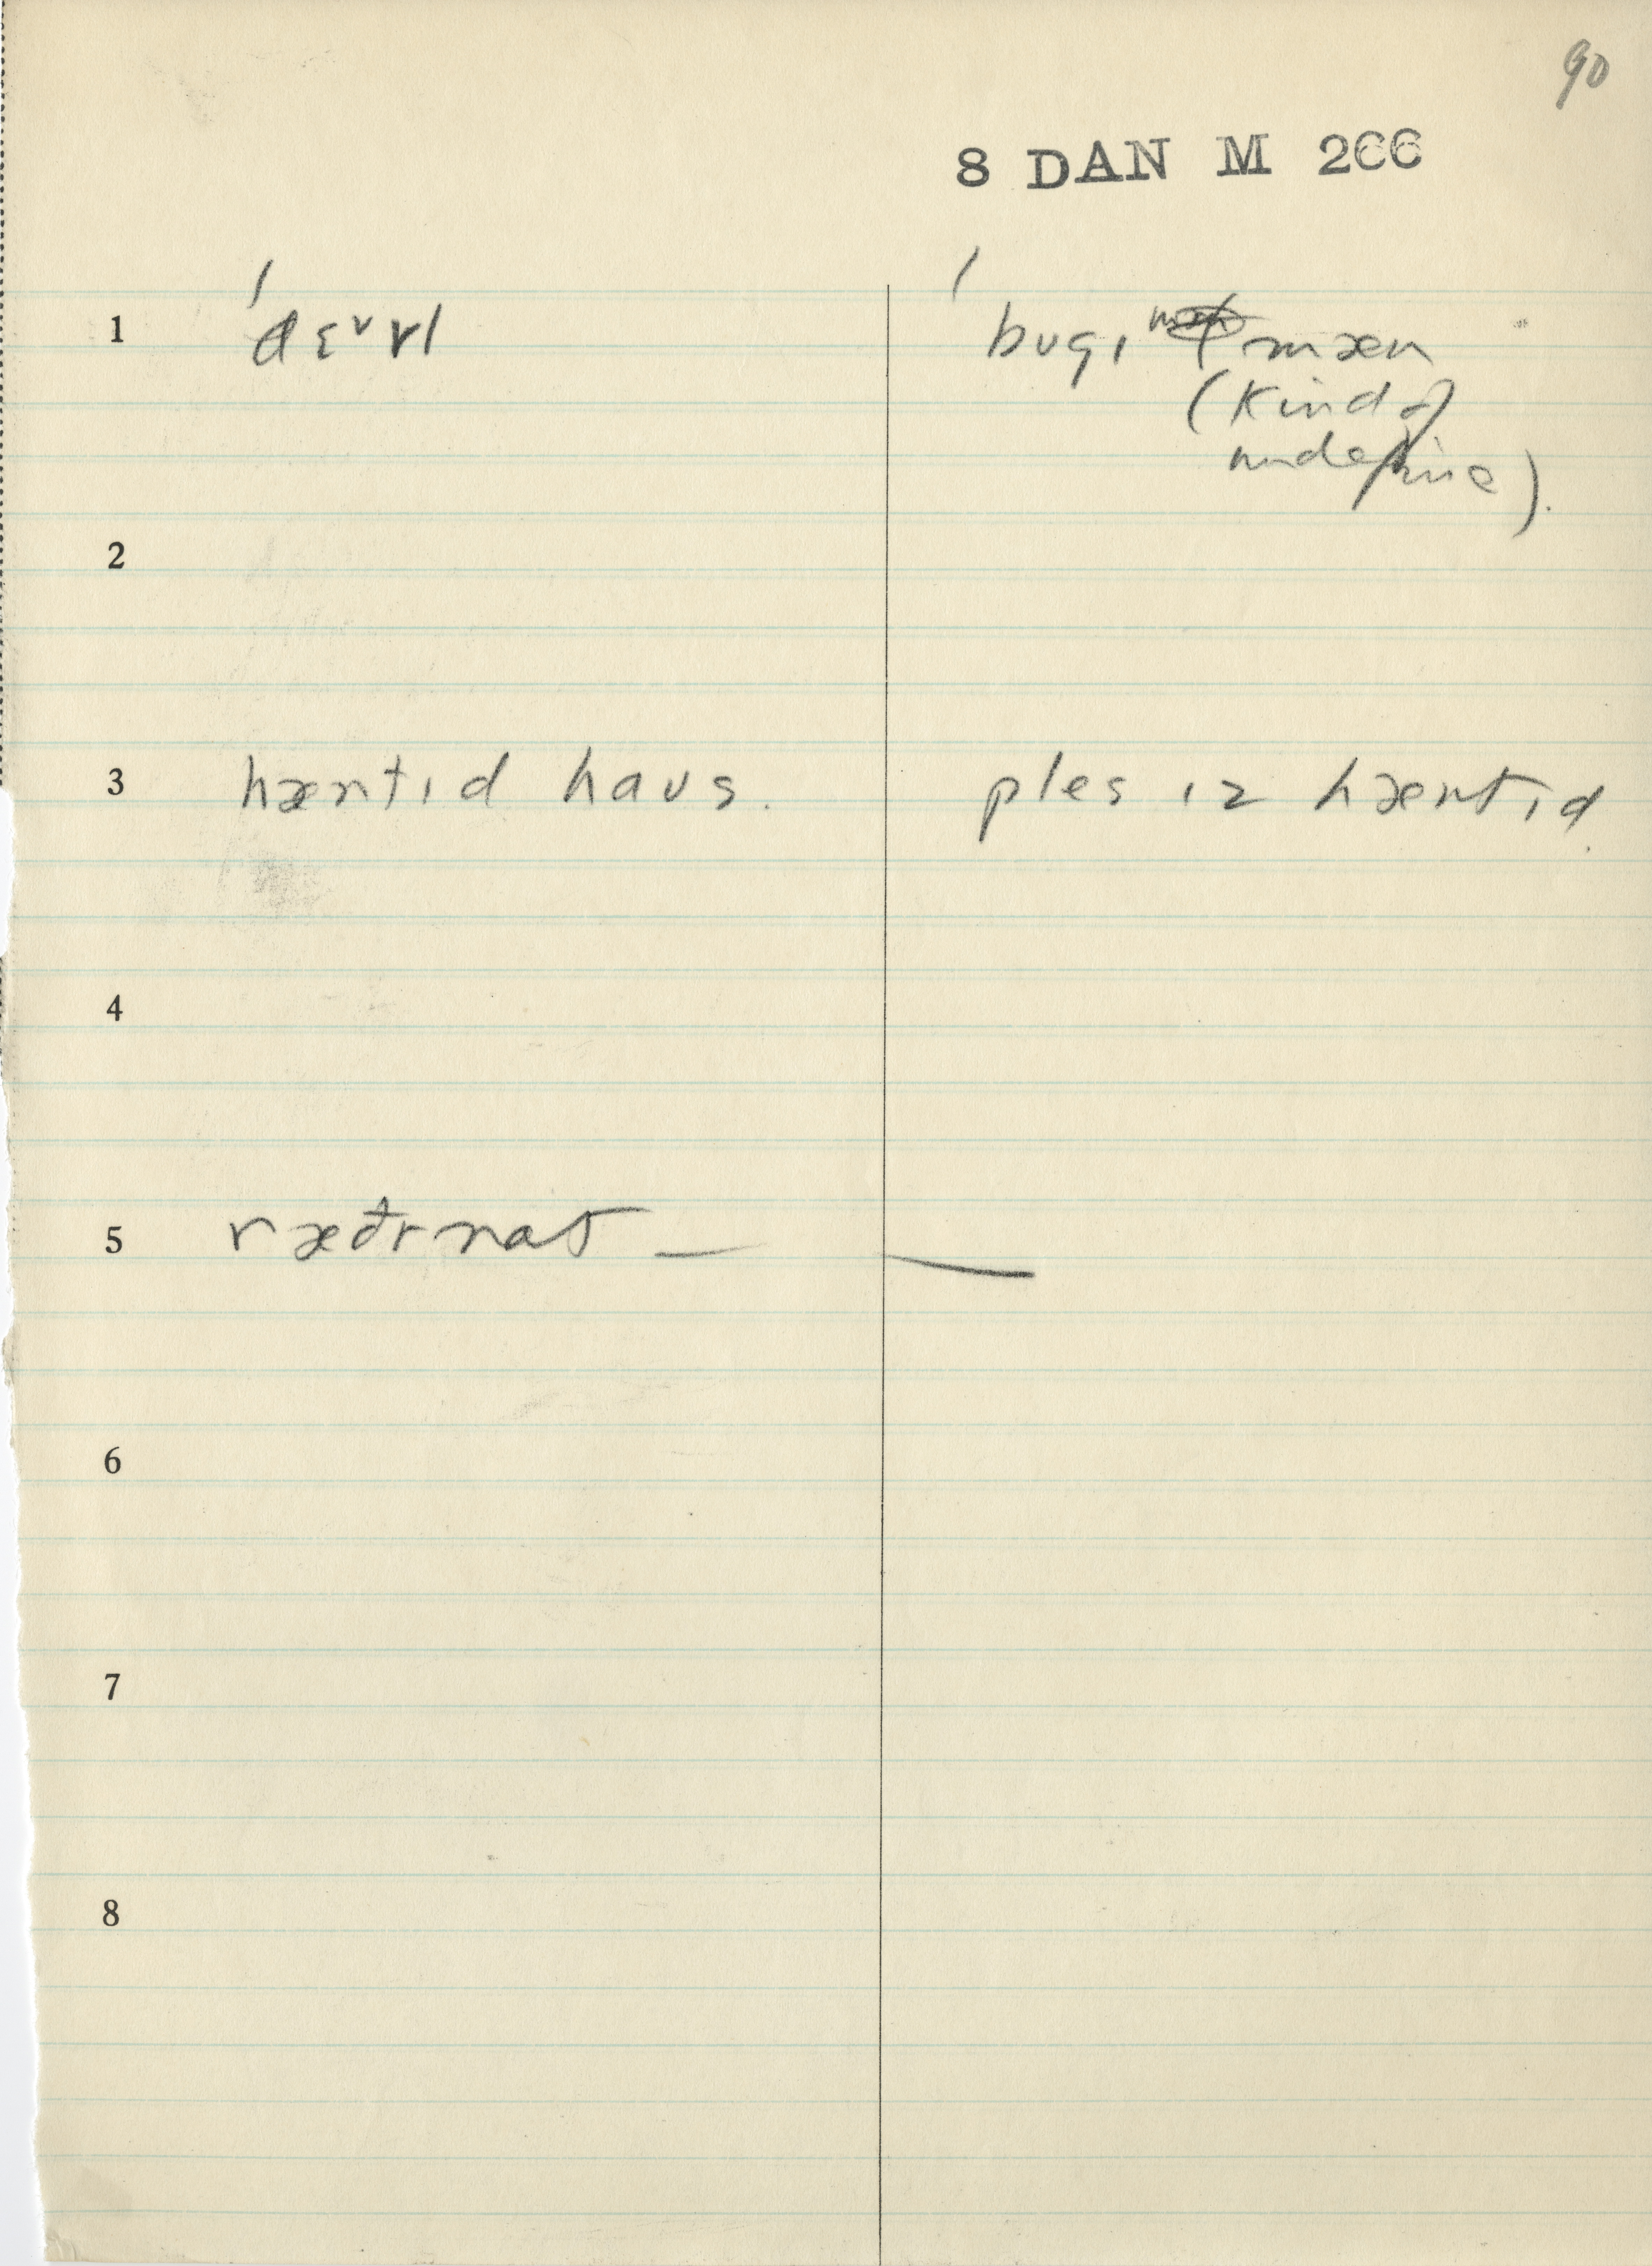 90
8 DAN M 266
1 ˈdɛvrl bʊgɪ mæn
(Kind of
indefine).
2
3 hæntɪd haʊs. ples ɪz hæntɪd.
4
5 ræðr nat — —
6
7
8